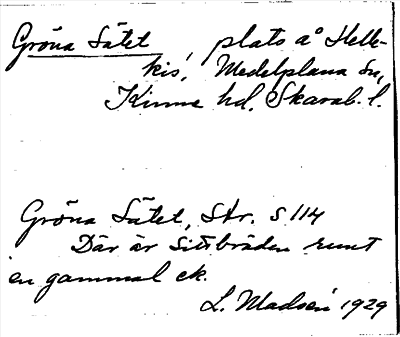 Gröna Sätet, plats å Helle-
kis, Medelplana sn,
Kinne hd, Skarab. l.
Gröna Sätet, Str. S 114
Där är sittbräden runt
en gammal ek.
L. Madsén 1929